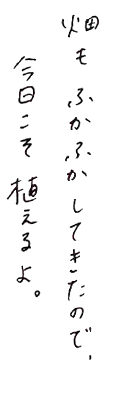 畑もふかふかしてきたので、
今日こそ植えるよ。